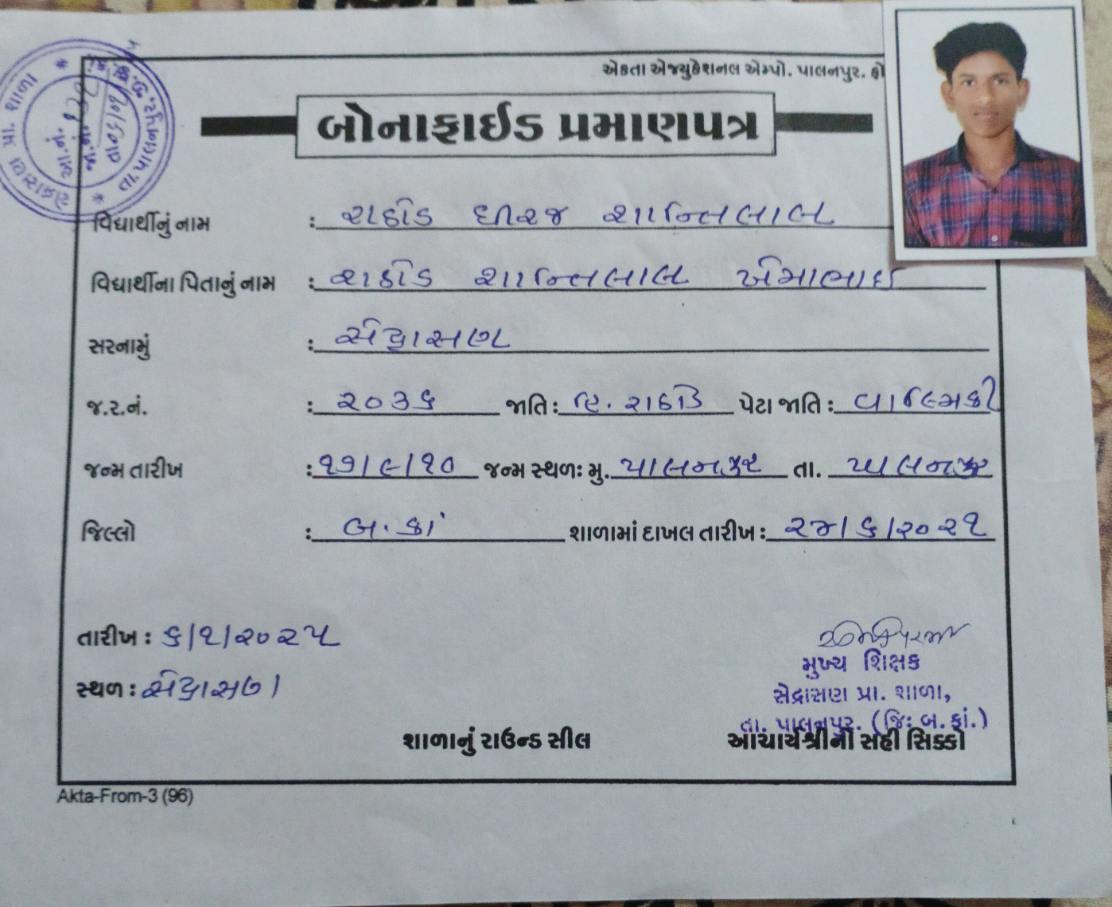 એકતા એજ્યુકેશનલ એમ્પો. પાલનપુર. ફો
બોનાફાઈડ પ્રમાણપત્ર
વિદ્યાર્થીનું નામ : રાઠોડ ધીરજ શાન્તિલાલ
વિદ્યાર્થીના પિતાનું નામ : રાઠોડ શાન્તિલાલ ખેમાભાઇ
સરનામું : સેદ્રાસણ
જ.ર.નં. : ૨૦૩૬ જાતિ : હિ. રાઠોડ પેટા જાતિ : વાલ્મિકી
જન્મ તારીખ : ૧૧/૯/૧૦ જન્મ સ્થળઃ મુ. પાલનપુર તા. પાલનપુર
જિલ્લો : બ.કાં શાળામાં દાખલ તારીખ : ૨૪/૬/૨૦૨૧
તારીખ : ૬/૧/૨૦૨૫
સ્થળ : સેદ્રાસણ
મુખ્ય શિક્ષક
સેદ્રાસણ પ્રા. શાળા,
તા. પાલનપુર. (જિઃ બ.કાં.)
શાળાનું રાઉન્ડ સીલ આચાર્યશ્રીની સહી સિક્કો
Akta-From-3 (96)